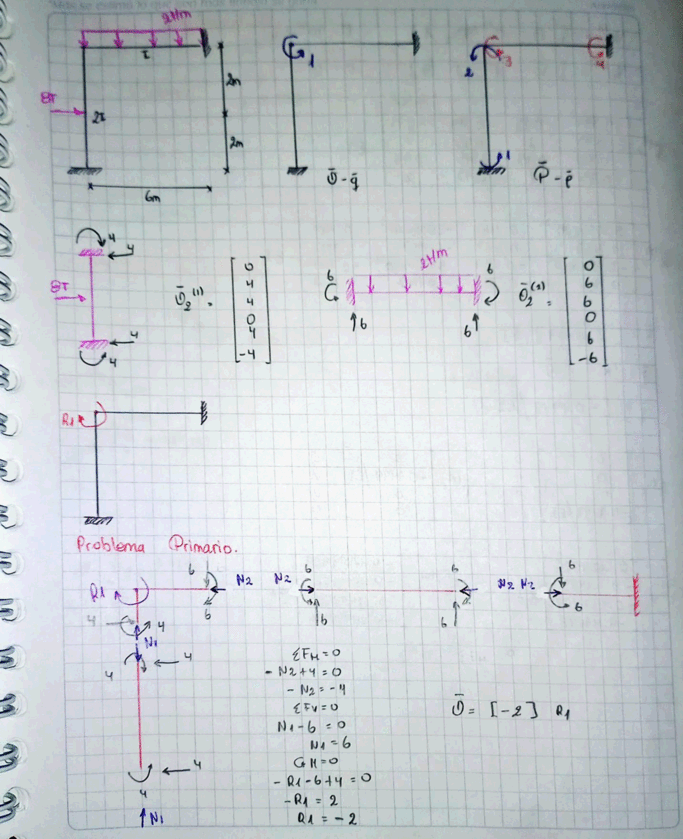 2T/m
I
2m
8T
2I
2m
6m
1
Q̄-q̄
2
3
4
1
P̄-ē
4
4
8T
4
4
Q̄₂⁽¹⁾ =
0
4
4
0
4
-4
2T/m
6
6
6
6
Q̄₂⁽²⁾ =
0
6
6
0
6
-6
R1
Problema Primario.
R1
6
N2
N2
6
6
N2
N2
6
6
4
4
N1
6
6
6
4
4
4
4
N1
ΣFH=0
-N2+4=0
-N2=-4
ΣFV=0
N1-6=0
N1=6
GH=0
-R1-6+4=0
-R1=2
R1=-2
Q̄= [-2] R1